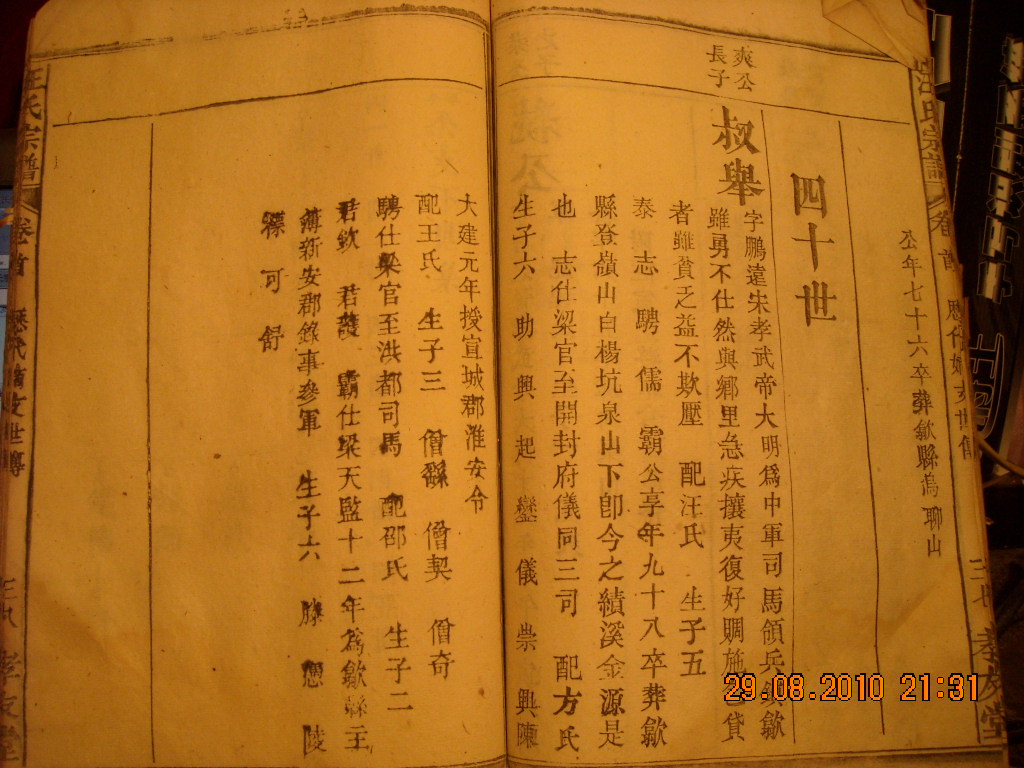 汪氏宗譜 卷首 歷代
孝友堂
公年七十六卒葬歙縣烏聊山
四十世
爽公長子
叔舉 字鵬遠宋孝武帝大明爲中軍司馬領兵 歙
雖勇不仕然與鄉里急疾攘夷復好賙施 貸
者雖貧乏益不欺壓 配汪氏 生子五
泰 志 騁 儒 霸公享年九十八卒葬歙
縣登嶺山白楊坑泉山下卽今之績溪金源是
也 志仕梁官至開封府儀同三司 配方氏
生子六 助 興 大 起 鸞 儀 崇 興陳
大建元年授宣城郡淮安令
配王氏 生子三 僧 僧契 僧奇
騁仕梁官至洪都司馬 配邵氏 生子二
君欽 君 霸仕梁天監十二年爲歙縣主
簿新安郡錄事參軍 生子六 滕 陵
可 舒
汪氏宗譜 卷首 歷代 世傳
孝友堂
29.08.2010 21:31